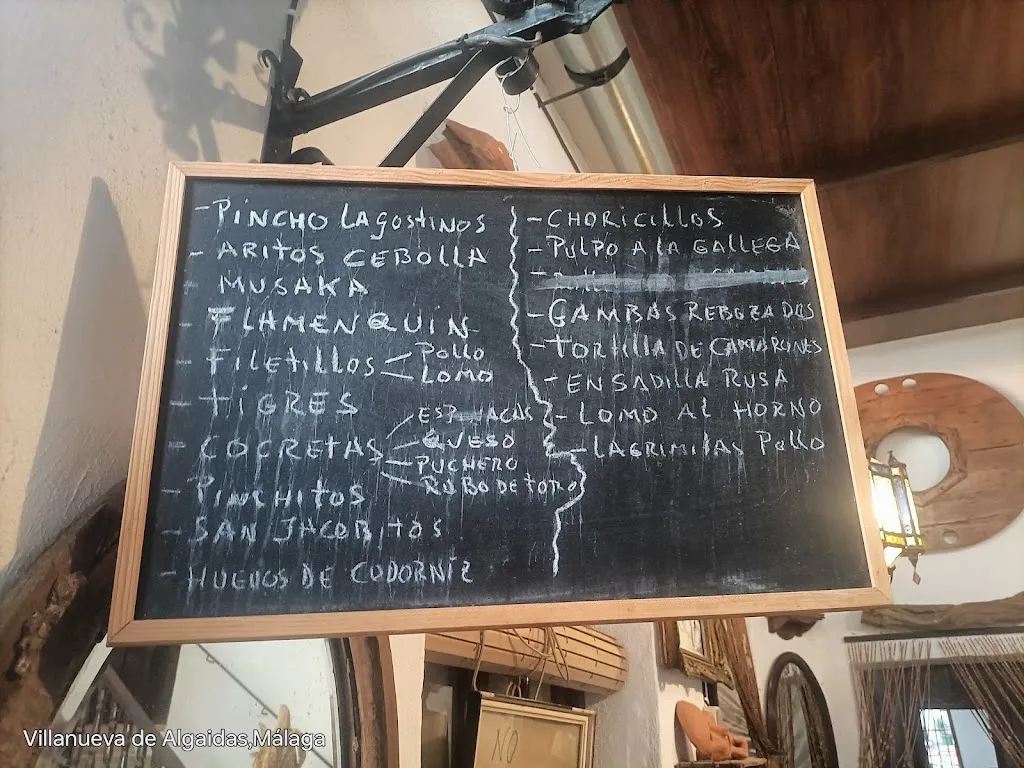 - PINCHO LAGOSTINOS
- ARITOS CEBOLLA
MUSAKA
- FLAMENQUIN
- FILETILLOS POLLO
LOMO
- TIGRES
- COCRETAS ESPINACAS
QUESO
PUCHERO
RABO DE TORO
- PINCHITOS
- SAN JACOBITOS
- HUEVOS DE CODORNIZ
- CHORICILLOS
- PULPO A LA GALLEGA
- GAMBAS REBOZADAS
- TORTILLA DE CAMARONES
- ENSADILLA RUSA
- LOMO AL HORNO
- LAGRIMITAS POLLO
NO
Villanueva de Algaidas,Málaga